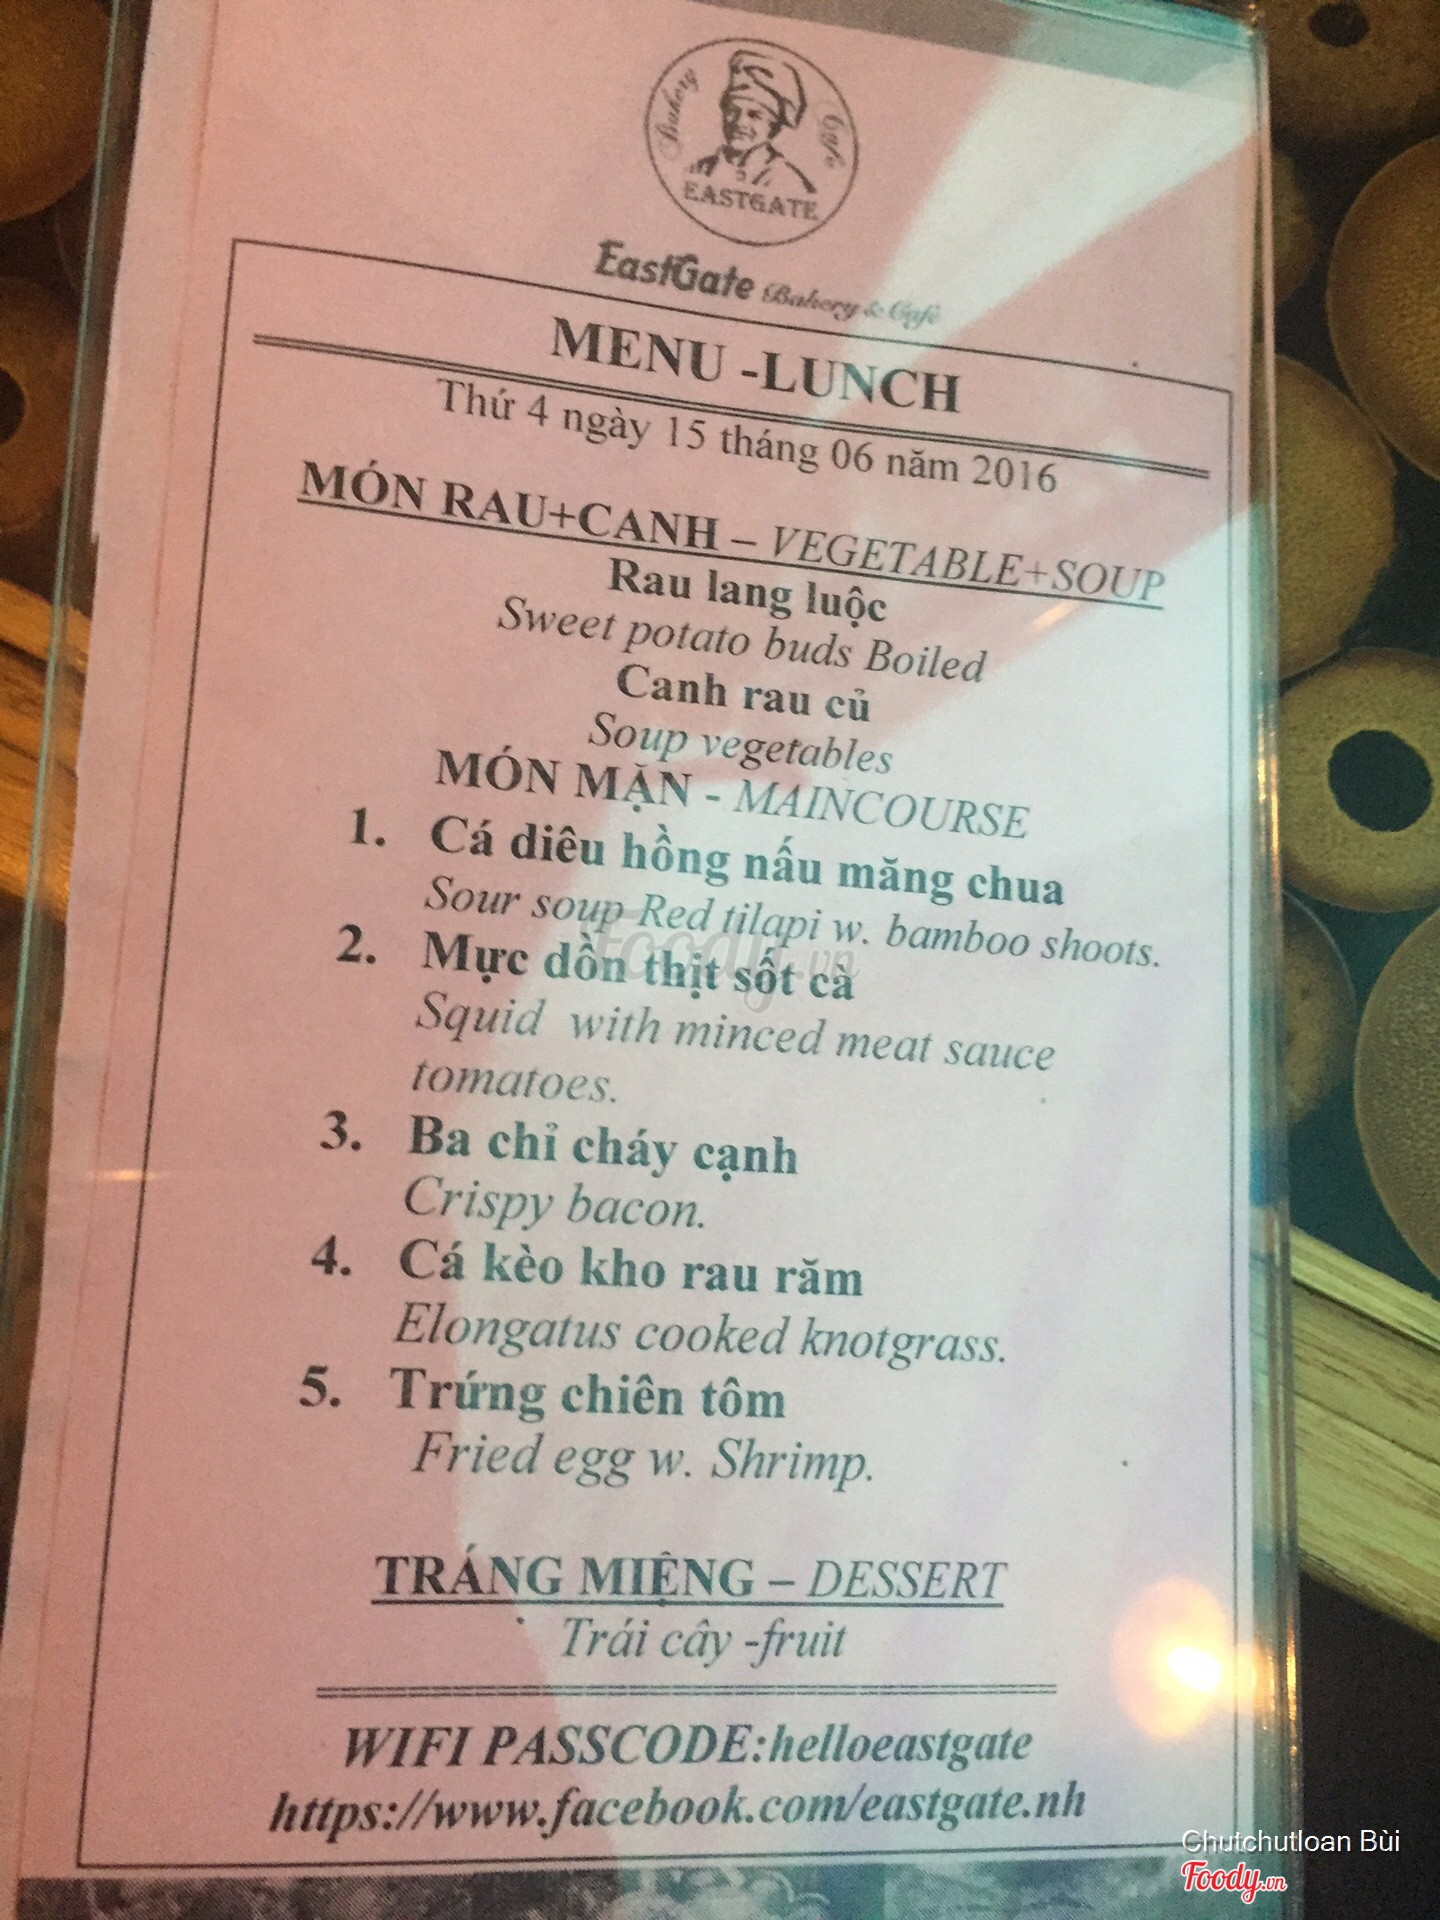 Bakery Cafe
EASTGATE
EastGate Bakery & Café
MENU -LUNCH
Thứ 4 ngày 15 tháng 06 năm 2016
MÓN RAU+CANH – VEGETABLE+SOUP
Rau lang luộc
Sweet potato buds Boiled
Canh rau củ
Soup vegetables
MÓN MẶN - MAINCOURSE
1. Cá diêu hồng nấu măng chua
Sour soup Red tilapi w. bamboo shoots.
2. Mực dồn thịt sốt cà
Squid with minced meat sauce
tomatoes.
3. Ba chỉ cháy cạnh
Crispy bacon.
4. Cá kèo kho rau răm
Elongatus cooked knotgrass.
5. Trứng chiên tôm
Fried egg w. Shrimp.
TRÁNG MIỆNG – DESSERT
Trái cây -fruit
WIFI PASSCODE:helloeastgate
https://www.facebook.com/eastgate.nh
Foody.vn
Chutchutloan Bùi
Foody.vn